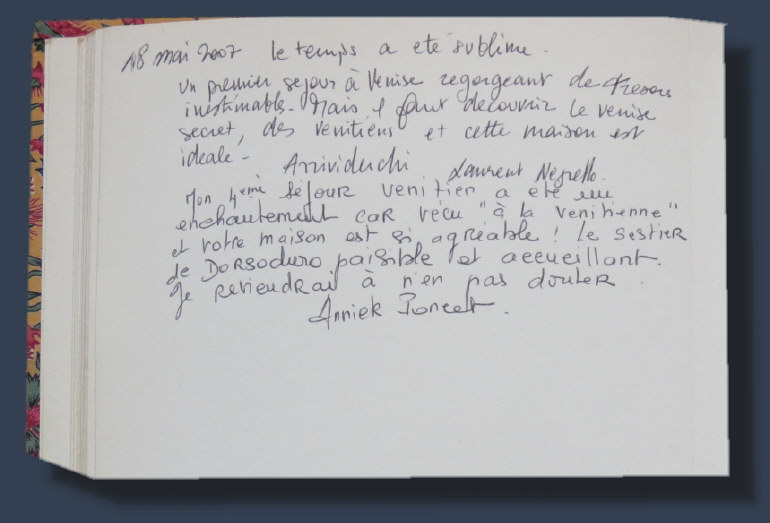 18 mai 2007 le temps a eté sublime.
un premier sejour à Venise regorgeant de tresors
inestimables. Mais il faut decouvrir le Venise
secret, des venitiens et cette maison est
ideale -
Arrividerchi Laurent Negrello.
Mon 4eme séjour venitier a eté un
enchantement car vécu "à la venitienne"
et votre maison est si agréable ! le sestier
de Dorsoduro paisible et accueillant.
Je reviendrai à n'en pas douter.
Anniek Poncet.